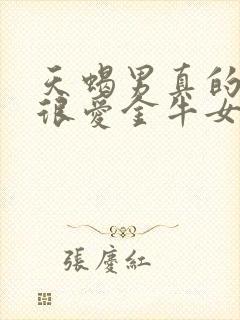 天蝎男真的
很爱金牛女
張慶紅